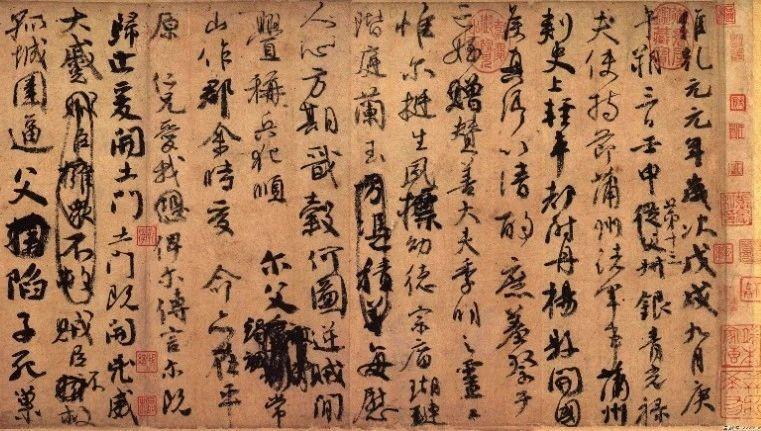 維乾元元年歲次戊戌九月庚
午朔三日壬申第十三從父叔銀青光祿
夫使持節蒲州諸軍事蒲州
刺史上輕車都尉丹楊縣開國
侯真卿以清酌庶羞祭于
亡姪贈贊善大夫季明之靈曰
惟爾挺生夙標幼德宗廟瑚璉
階庭蘭玉方憑積善每慰
人心方期戩穀何圖逆賊閒
釁稱兵犯順爾父竭誠常
山作郡余時受命亦在平
原仁兄愛我俾爾傳言爾既
歸止爰開土門土門既開兇威
大蹙賊臣擁眾不救賊臣不救
孤城圍逼父陷子死巢